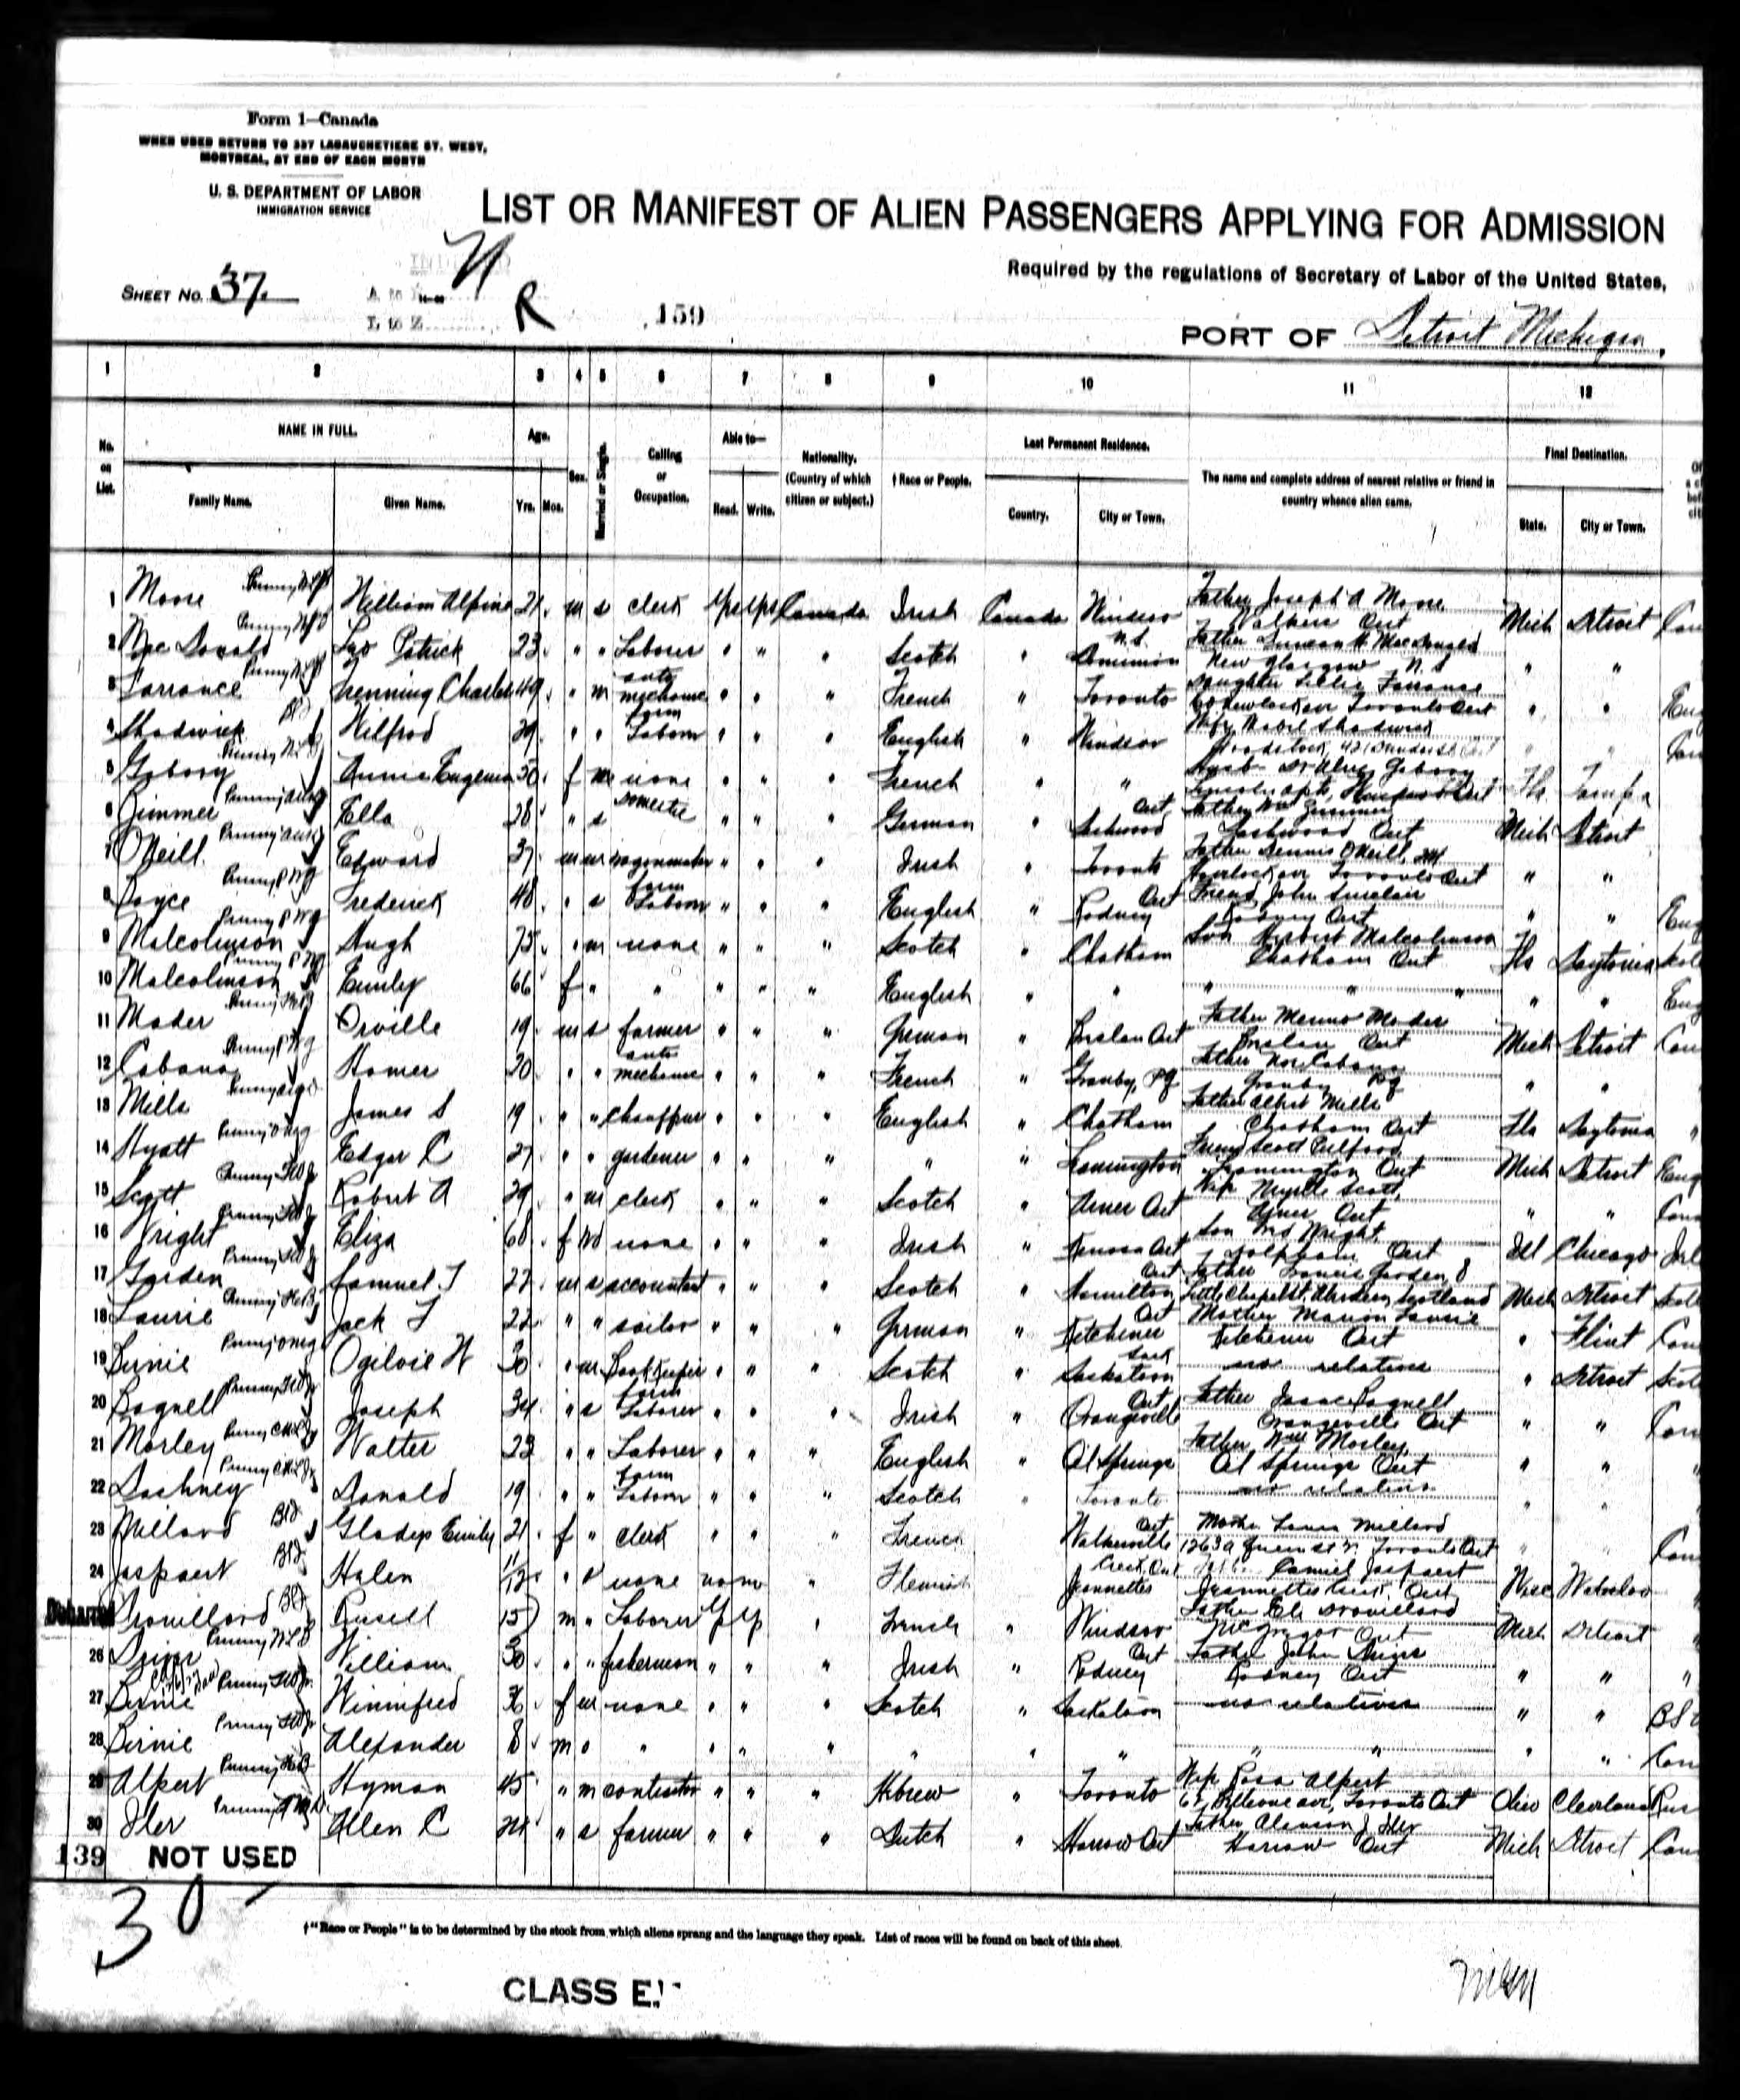 Form 1—Canada
WHEN USED RETURN TO 337 LAGAUCHETIERE ST. WEST,
MONTREAL, AT END OF EACH MONTH
U. S. DEPARTMENT OF LABOR
IMMIGRATION SERVICE
LIST OR MANIFEST OF ALIEN PASSENGERS APPLYING FOR ADMISSION
Required by the regulations of Secretary of Labor of the United States,
SHEET No. 37
A to
L to Z
R
159
PORT OF Detroit Michigan,
1 2 3 4 5 6 7 8 9 10 11 12
No. on List.
NAME IN FULL.
Family Name. Given Name.
Age.
Yrs. Mos.
Sex.
Married or Single.
Calling or Occupation.
Able to—
Read. Write.
Nationality. (Country of which citizen or subject.)
† Race or People.
Last Permanent Residence.
Country. City or Town.
The name and complete address of nearest relative or friend in country whence alien came.
Final Destination.
State. City or Town.
1 Moore William Alpine 21 m s clerk yes yes Canada Irish Canada Windsor Father Joseph A Moore Walkers Ont Mich Detroit Can
2 MacDonald Leo Patrick 23 " " Laborer " " " Scotch " N.S. Dominion Father Duncan H MacDonald New Glasgow N.S " "
3 Farrance Charles 49 " m auto mechanic " " " French " Toronto Daughter Lillie Farrance Toronto Ont " " Eng
4 Shadwick Wilfrod 29 " " farm Laborer " " " English " Windsor Wife Mabel Shadwick Woodstock, 421 Dundas St Ont " " Can
5 Gabory Annie Eugenia 30 f m none " " " French " " Husb Dr Gabory Lincoln Apts, Windsor Ont Fla Tampa
6 Zimmer Ella 28 " s Domestic " " " German " Ont Dashwood Father Wm Zimmer Dashwood Ont Mich Detroit
7 O'Neill Edward 37 m m wagonmaker " " " Irish " Toronto Father Dennis O'Neill, Toronto Ont " "
8 Boyce Frederick 48 " s farm Laborer " " " English " Ont Rodney Friend John Sinclair Rodney Ont " " Eng
9 Malcolmson Hugh 75 " m none " " " Scotch " Chatham Son Herbert Malcolmson Chatham Ont Fla Daytona Scot
10 Malcolmson Emily 66 f " " " " " English " " " " " " " Eng
11 Mader Orville 19 m s farmer " " " German " Breslau Ont Father Menno Mader Breslau Ont Mich Detroit Can
12 Cabana Homer 20 " " auto mechanic " " " French " Granby, PQ Father Cabana Granby PQ " " "
13 Mills James S 19 " " Chauffeur " " " English " Chatham Father Albert Mills Chatham Ont Fla Daytona "
14 Hyatt Edgar C 27 " " gardener " " " " " Leamington Friend Scott Pulford Leamington Ont Mich Detroit Eng
15 Scott Robert A 29 " m clerk " " " Scotch " Ont Wife Myrtle Scott Ont " " Can
16 Wright Eliza 68 f Wd none " " " Irish " Ont Son Wright Ont Ill Chicago Irl
17 Garden Samuel 22 m s accountant " " " Scotch " Ont Hamilton Father Francis Garden 8 Little Chapel St, Aberdeen, Scotland Mich Detroit Scot
18 Laurie Jack 22 " " sailor " " " German " Ont Kitchener Mother Marion Laurie Kitchener Ont " Flint Can
19 Birnie Ogilvie W 30 " m Bookkeeper " " " Scotch " Sask Saskatoon no relatives " Detroit Scot
20 Bagnell Joseph 34 " s farm Laborer " " " Irish " Ont Orangeville Father Isaac Bagnell Orangeville Ont " " Can
21 Morley Walter 23 " " Laborer " " " English " Oil Springs Father Wm Morley Oil Springs Ont " " "
22 Dashney Donald 19 " " farm Laborer " " " Scotch " Toronto no relatives " " "
23 Millard Gladys Emily 21 f " clerk " " " French Ont Walkerville Mother Millard 1263a Queen St W. Toronto Ont " " Can
24 Jaspaert Helen 11/12 " s none no no " Flemish Creek, Ont Jeannettes Camiel Jaspaert Jeannettes Creek, Ont Wisc Waterloo "
Debarred Drouillard Russell 15 m " Laborer y y " French " Windsor Father Eli Drouillard McGregor Ont Mich Detroit "
26 William 30 " " fisherman " " " Irish " Ont Rodney Father John Rodney Ont " " "
27 Birnie Winnifred 36 f m none " " " Scotch " Saskatoon no relatives " "
28 Birnie Alexander 8 m s " " " " " " " " " " " Can
29 Alpert Hyman 45 " m contractor " " " Hebrew " Toronto Wife Rosa Alpert 67 Bellevue ave, Toronto Ont Ohio Cleveland Rus
30 Iler Allen C 24 " s farmer " " " Dutch " Harrow Ont Father Alanson J Iler Harrow Ont Mich Detroit Can
139 NOT USED
30
†"Race or People" is to be determined by the stock from which aliens sprang and the language they speak. List of races will be found on back of this sheet.
CLASS E